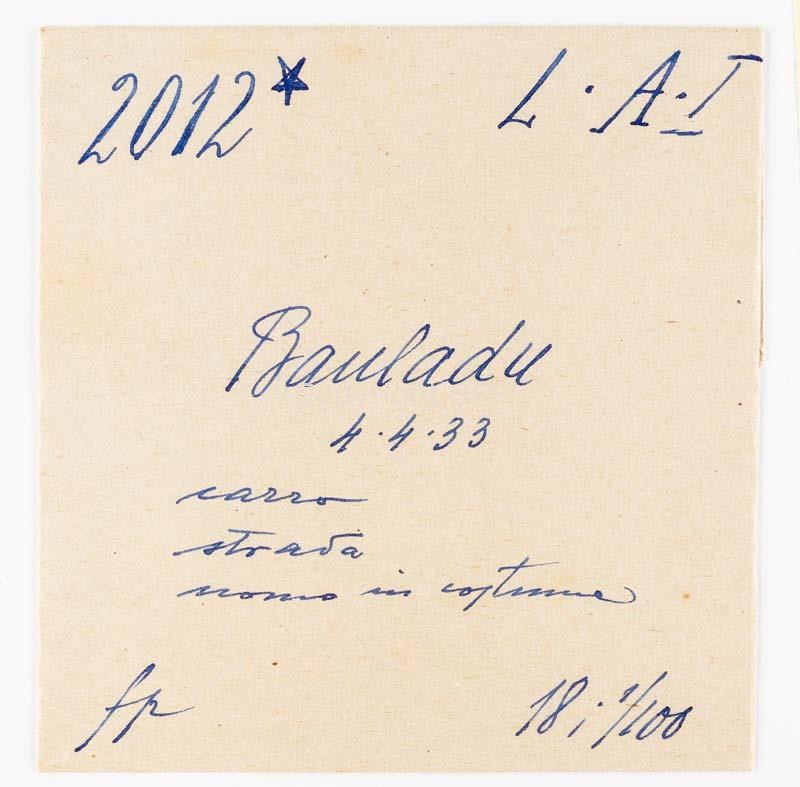 2012* L. A. I
Bauladu
4.4.33
carro
strada
uomo in costume
fp 18; 1/100